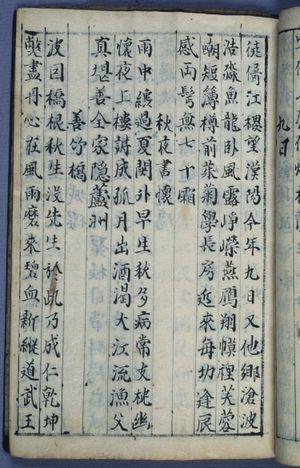 九日
徒倚江樓望漢陽今年九日又他鄉滄波
浩淼魚龍臥風露崢嶸燕鴈翔幘裡芙蓉
短簿樽前茱菊學長房近來每切逢辰
感兩鬢無七十霜
秋夜書懷
雨中緩過夏関外早生秋多病常支枕幽
懷夜上樓詩成孤月出酒渴大江流漁父
真堪善全家隱蘆洲
善竹橋
波橋根秋沒先生於此乃成仁乾坤
弊盡丹心在風雨磨來碧血新縱道武王